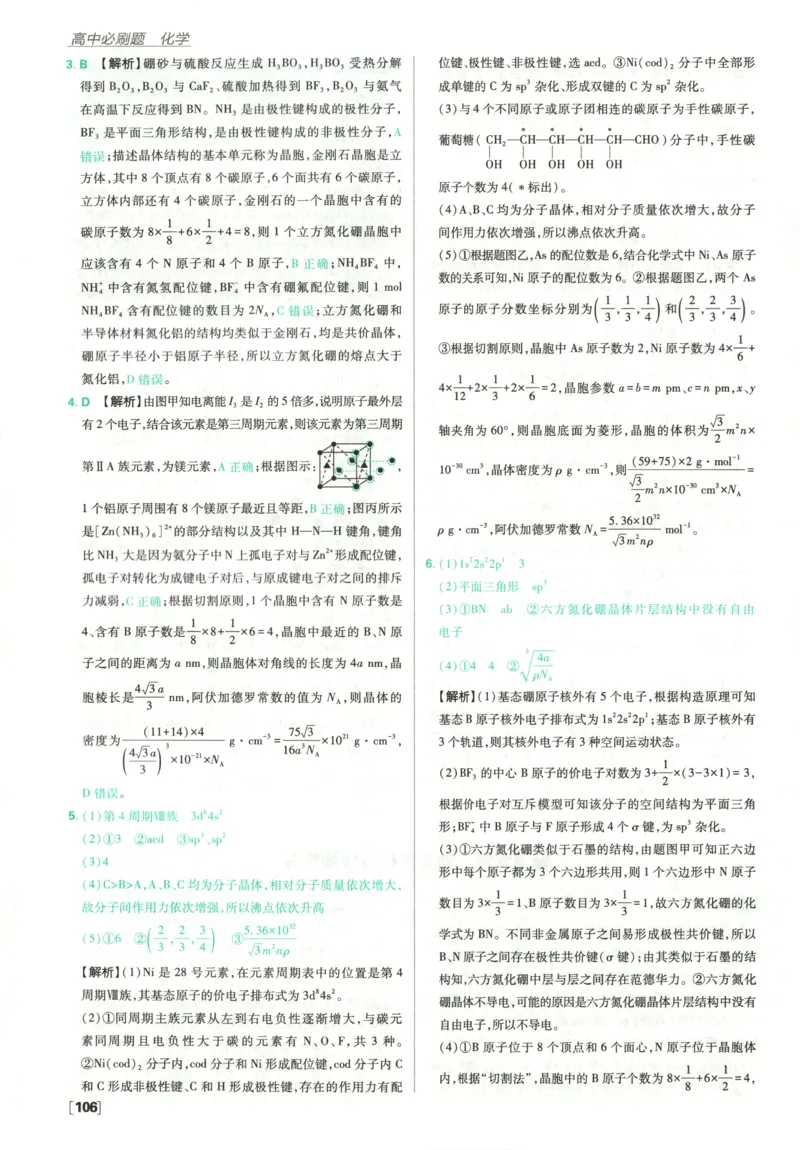 高中必刷题 化学
3. B 【解析】硼砂与硫酸反应生成 H₃BO₃,H₃BO₃ 受热分解
得到 B₂O₃,B₂O₃ 与 CaF₂、硫酸加热得到 BF₃,B₂O₃ 与氨气
在高温下反应得到 BN。NH₃ 是由极性键构成的极性分子,
BF₃ 是平面三角形结构,是由极性键构成的非极性分子,A
错误;描述晶体结构的基本单元称为晶胞,金刚石晶胞是立
方体,其中 8 个顶点有 8 个碳原子,6 个面共有 6 个碳原子,
立方体内部还有 4 个碳原子,金刚石的一个晶胞中含有的
碳原子数为 8×1/8+6×1/2+4=8,则 1 个立方氮化硼晶胞中
应该含有 4 个 N 原子和 4 个 B 原子,B 正确;NH₄BF₄ 中,
NH₄⁺ 中含有氮氢配位键,BF₄⁻ 中含有硼氟配位键,则 1 mol
NH₄BF₄ 含有配位键的数目为 2N_A,C 错误;立方氮化硼和
半导体材料氮化铝的结构均类似于金刚石,均是共价晶体,
硼原子半径小于铝原子半径,所以立方氮化硼的熔点大于
氮化铝,D 错误。
4. D 【解析】由图甲知电离能 I₃ 是 I₂ 的 5 倍多,说明原子最外层
有 2 个电子,结合该元素是第三周期元素,则该元素为第三周期
第ⅡA 族元素,为镁元素,A 正确;根据图示: ,
1 个铝原子周围有 8 个镁原子最近且等距,B 正确;图丙所示
是[Zn(NH₃)₆]²⁺的部分结构以及其中 H—N—H 键角,键角
比 NH₃ 大是因为氨分子中 N 上孤电子对与 Zn²⁺形成配位键,
孤电子对转化为成键电子对后,与原成键电子对之间的排斥
力减弱,C 正确;根据切割原则,1 个晶胞中含有 N 原子数是
4、含有 B 原子数是1/8×8+1/2×6=4,晶胞中最近的 B、N 原
子之间的距离为 a nm,则晶胞体对角线的长度为 4a nm,晶
胞棱长是4√3a/3 nm,阿伏加德罗常数的值为 N_A,则晶体的
密度为 (11+14)×4/((4√3a/3)³×10⁻²¹×N_A) g·cm⁻³=75√3/(16a³N_A)×10²¹ g·cm⁻³,
D 错误。
5. (1)第 4 周期Ⅷ族 3d⁸4s²
(2)①3 ②acd ③sp³、sp²
(3)4
(4)C>B>A,A、B、C 均为分子晶体,相对分子质量依次增大,
故分子间作用力依次增强,所以沸点依次升高
(5)①6 ②(2/3,2/3,3/4) ③5.36×10³²/(√3m²nρ)
【解析】(1)Ni 是 28 号元素,在元素周期表中的位置是第 4
周期Ⅷ族,其基态原子的价电子排布式为 3d⁸4s²。
(2)①同周期主族元素从左到右电负性逐渐增大,与碳元
素同周期且电负性大于碳的元素有 N、O、F,共 3 种。
②Ni(cod)₂ 分子内,cod 分子和 Ni 形成配位键,cod 分子内 C
和 C 形成非极性键、C 和 H 形成极性键,存在的作用力有配
[106]
位键、极性键、非极性键,选 acd。③Ni(cod)₂ 分子中全部形
成单键的 C 为 sp³ 杂化、形成双键的 C 为 sp² 杂化。
(3)与 4 个不同原子或原子团相连的碳原子为手性碳原子,
* * * *
葡萄糖( CH₂—CH—CH—CH—CH—CHO )分子中,手性碳
OH OH OH OH OH
原子个数为 4( * 标出)。
(4)A、B、C 均为分子晶体,相对分子质量依次增大,故分子
间作用力依次增强,所以沸点依次升高。
(5)①根据题图乙,As 的配位数是 6,结合化学式中 Ni、As 原子
数的关系可知,Ni 原子的配位数为 6。②根据题图乙,两个 As
原子的原子分数坐标分别为(1/3,1/3,1/4)和(2/3,2/3,3/4)。
③根据切割原则,晶胞中 As 原子数为 2,Ni 原子数为 4×1/6+
4×1/12+2×1/3+2×1/6=2,晶胞参数 a=b=m pm、c=n pm,x、y
轴夹角为 60°,则晶胞底面为菱形,晶胞的体积为√3/2 m²n×
10⁻³⁰ cm³,晶体密度为 ρ g·cm⁻³,则 (59+75)×2 g·mol⁻¹/(√3/2 m²n×10⁻³⁰ cm³×N_A)=
ρ g·cm⁻³,阿伏加德罗常数 N_A=5.36×10³²/(√3m²nρ) mol⁻¹。
6. (1)1s²2s²2p¹ 3
(2)平面三角形 sp³
(3)①BN ab ②六方氮化硼晶体片层结构中没有自由
电子
(4)①4 4 ②³√(4a/(ρN_A))
【解析】(1)基态硼原子核外有 5 个电子,根据构造原理可知
基态 B 原子核外电子排布式为 1s²2s²2p¹;基态 B 原子核外有
3 个轨道,则其核外电子有 3 种空间运动状态。
(2)BF₃ 的中心 B 原子的价电子对数为 3+1/2×(3-3×1)=3,
根据价电子对互斥模型可知该分子的空间结构为平面三角
形;BF₄⁻ 中 B 原子与 F 原子形成 4 个 σ 键,为 sp³ 杂化。
(3)①六方氮化硼类似于石墨的结构,由题图甲可知正六边
形中每个原子都为 3 个六边形共用,则 1 个六边形中 N 原子
数目为 3×1/3=1、B 原子数目为 3×1/3=1,故六方氮化硼的化
学式为 BN。不同非金属原子之间易形成极性共价键,所以
B、N 原子之间存在极性共价键(σ 键);由其类似于石墨的结
构知,六方氮化硼中层与层之间存在范德华力。②六方氮化
硼晶体不导电,可能的原因是六方氮化硼晶体片层结构中没有
自由电子,所以不导电。
(4)①B 原子位于 8 个顶点和 6 个面心,N 原子位于晶胞体
内,根据“切割法”,晶胞中的 B 原子个数为 8×1/8+6×1/2=4,